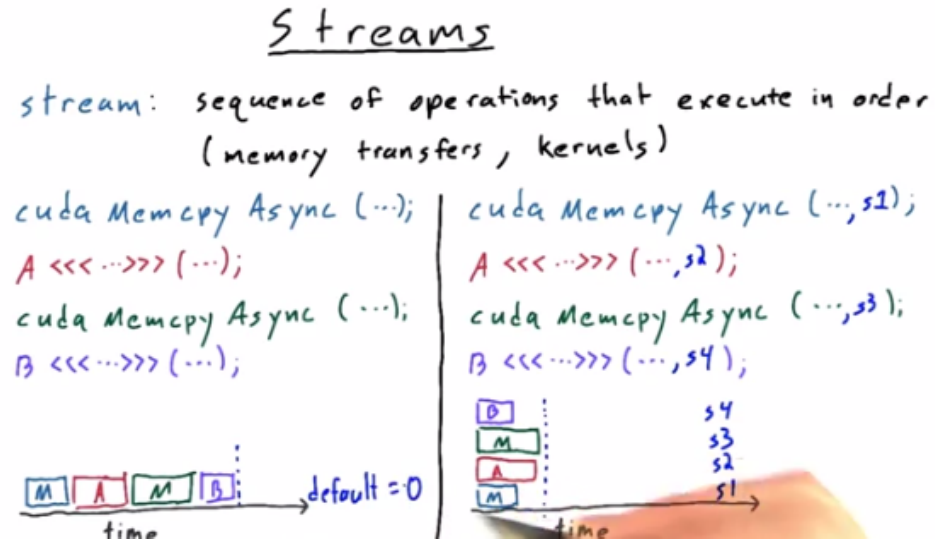 Streams
stream: sequence of operations that execute in order
(memory transfers, kernels)
cuda Memcpy Async (...);
A <<<...>>> (...);
cuda Memcpy Async (...);
B <<<...>>> (...);
M A M B default = 0
time
cuda Memcpy Async (..., s1);
A <<<...>>> (..., s2);
cuda Memcpy Async (..., s3);
B <<<...>>> (..., s4);
B s4
M s3
A s2
M s1
time